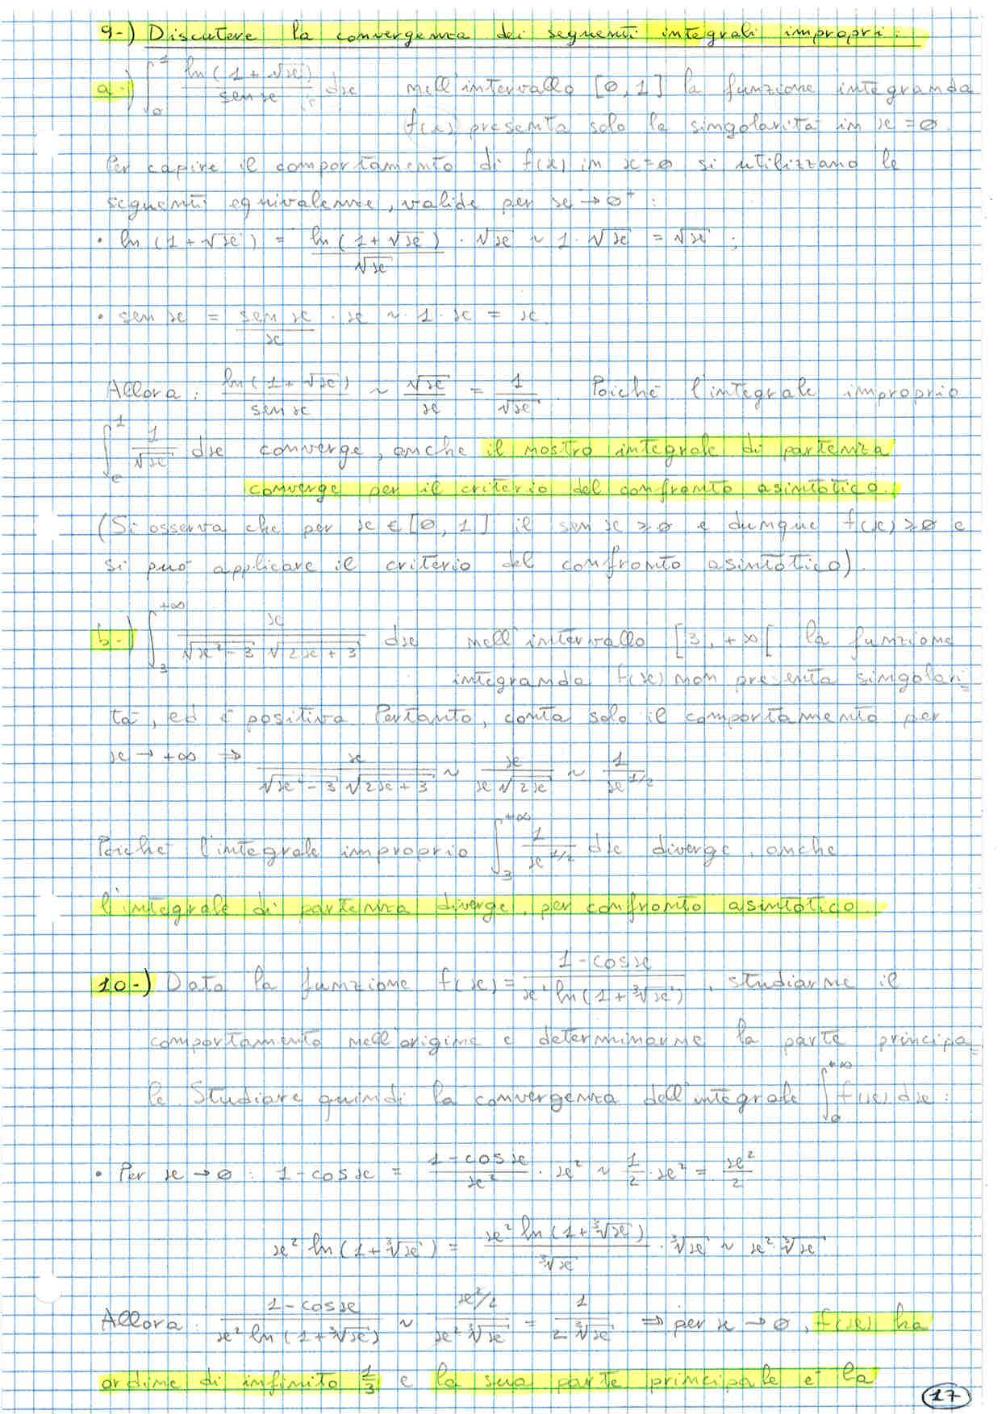 9-) Discutere la convergenza dei seguenti integrali impropri:
a-) ∫₀¹ ln(1+√x)/sen x dx nell'intervallo [0,1] la funzione integranda
f(x) presenta solo la singolarità in x=0.
Per capire il comportamento di f(x) in x=0 si utilizzano le
seguenti equivalenze, valide per x→0⁺:
• ln(1+√x) = ln(1+√x)/√x · √x ~ 1·√x = √x;
• sen x = sen x/x · x ~ 1·x = x.
Allora: ln(1+√x)/sen x ~ √x/x = 1/√x. Poiché l'integrale improprio
∫₀¹ 1/√x dx converge, anche il nostro integrale di partenza
converge per il criterio del confronto asintotico.
(Si osserva che per x∈[0,1] il sen x ≥0 e dunque f(x)≥0 e
si può applicare il criterio del confronto asintotico).
b-) ∫₃^{+∞} x/(√x²-3 √2x+3) dx nell'intervallo [3,+∞[ la funzione
integranda f(x) non presenta singolari=
tà, ed è positiva. Pertanto, conta solo il comportamento per
x→+∞ ⇒ x/(√x²-3 √2x+3) ~ x/(x√2x) ~ 1/x^{1/2}
Poiché l'integrale improprio ∫₃^{+∞} 1/x^{1/2} dx diverge, anche
l'integrale di partenza diverge, per confronto asintotico.
10-) Data la funzione f(x) = (1-cos x)/(x² ln(1+∛x)), studiarne il
comportamento nell'origine e determinarne la parte principa=
le. Studiare quindi la convergenza dell'integrale ∫₀^{+∞} f(x) dx:
• Per x→0: 1-cos x = (1-cos x)/x² · x² ~ 1/2 · x² = x²/2
x² ln(1+∛x) = x² ln(1+∛x)/∛x · ∛x ~ x² ∛x
Allora: (1-cos x)/(x² ln(1+∛x)) ~ (x²/2)/(x² ∛x) = 1/(2∛x) ⇒ per x→0, f(x) ha
ordine di infinito 1/3 e la sua parte principale è la
17